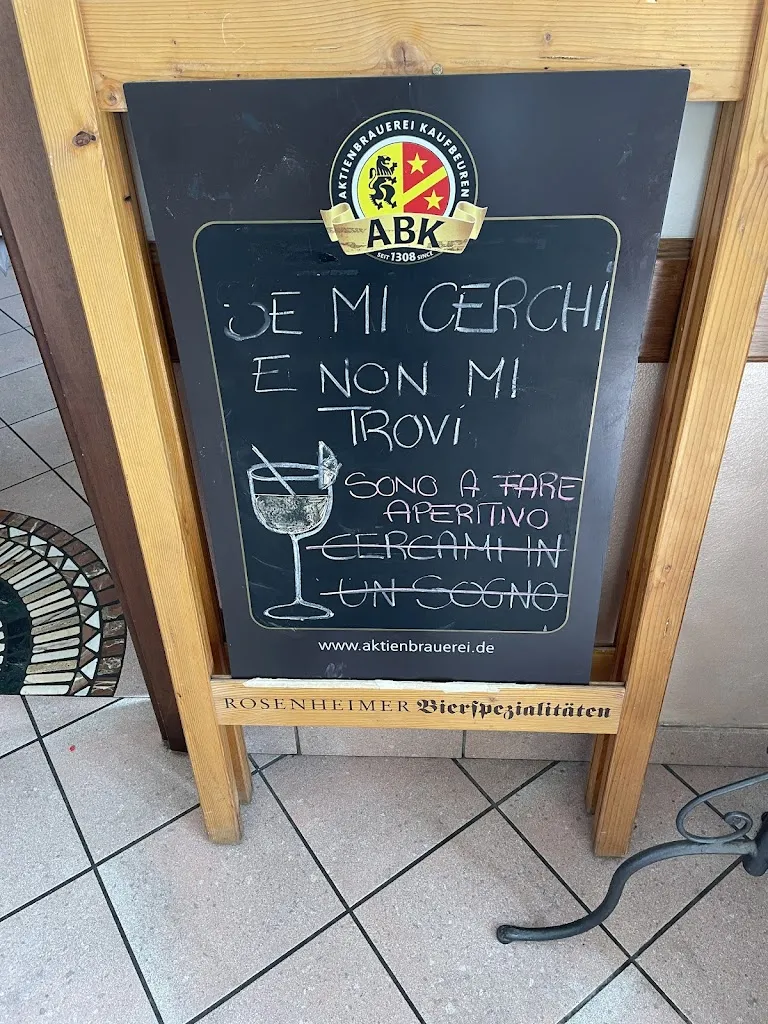 AKTIENBRAUEREI KAUFBEUREN
ABK
SEIT 1308 SINCE
SE MI CERCHI
E NON MI
TROVI
SONO A FARE
APERITIVO
CERCAMI IN
UN SOGNO
www.aktienbrauerei.de
ROSENHEIMER Bierspezialitäten